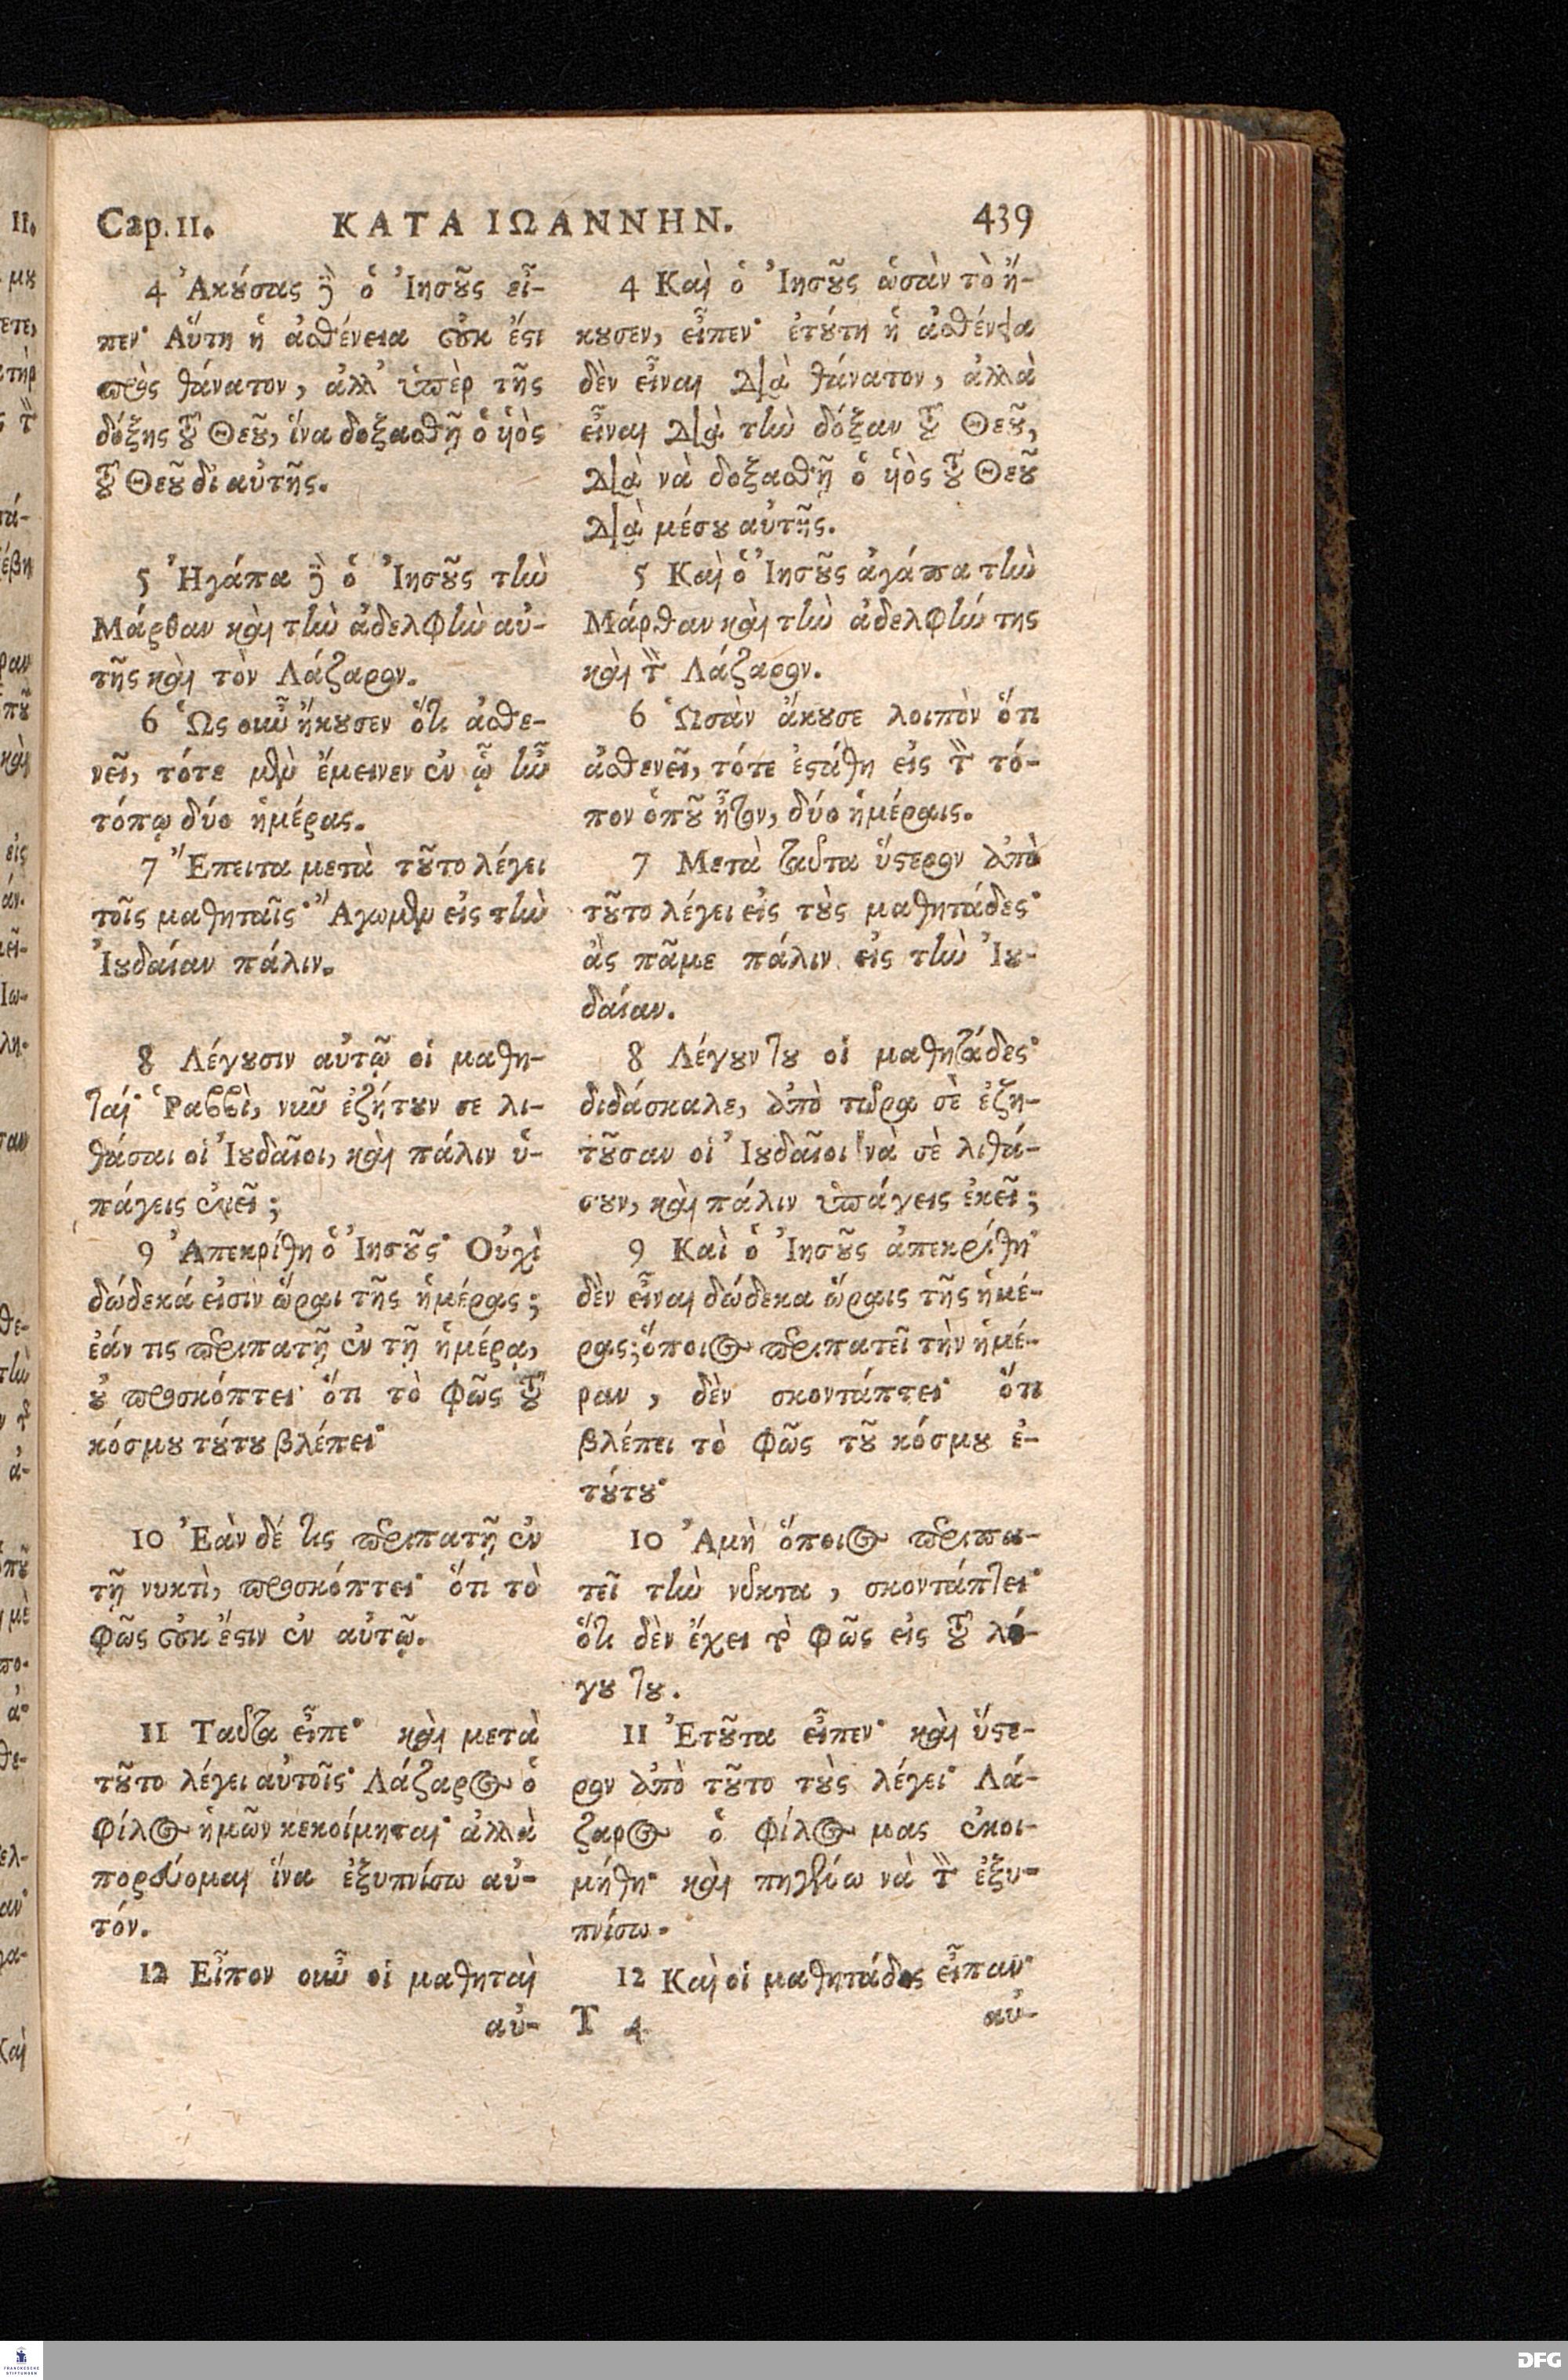 Cap. 11. ΚΑΤΑ ΙΩΑΝΝΗΝ. 439
4 Ἀκούσας δὲ ὁ Ἰησοῦς εἶ-
πεν· Αὕτη ἡ ἀσθένεια οὐκ ἔστι
πρὸς θάνατον, ἀλλ' ὑπὲρ τῆς
δόξης τοῦ Θεοῦ, ἵνα δοξασθῇ ὁ ὑιὸς
τοῦ Θεοῦ δι αὐτῆς.
5 Ἠγάπα δὲ ὁ Ἰησοῦς τὴν
Μάρθαν καὶ τὴν ἀδελφὴν αὐ-
τῆς καὶ τὸν Λάζαρον.
6 Ὡς οὖν ἤκουσεν ὅτι ἀσθε-
νεῖ, τότε μὲν ἔμεινεν ἐν ᾧ ἦν
τόπῳ δύο ἡμέρας.
7 Ἔπειτα μετὰ τοῦτο λέγει
τοῖς μαθηταῖς· Ἄγωμεν εἰς τὴν
Ἰουδαίαν πάλιν.
8 Λέγουσιν αὐτῷ οἱ μαθη-
ταί· Ῥαββὶ, νῦν ἐζήτουν σε λι-
θάσαι οἱ Ἰουδαῖοι, καὶ πάλιν ὑ-
πάγεις ἐκεῖ;
9 Ἀπεκρίθη ὁ Ἰησοῦς· Οὐχὶ
δώδεκά εἰσιν ὧραι τῆς ἡμέρας;
ἐάν τις περιπατῇ ἐν τῇ ἡμέρᾳ,
οὐ προσκόπτει· ὅτι τὸ φῶς τοῦ
κόσμου τούτου βλέπει·
10 Ἐὰν δέ τις περιπατῇ ἐν
τῇ νυκτὶ, προσκόπτει· ὅτι τὸ
φῶς οὐκ ἔστιν ἐν αὐτῷ.
11 Ταῦτα εἶπε· καὶ μετὰ
τοῦτο λέγει αὐτοῖς· Λάζαρος ὁ
φίλος ἡμῶν κεκοίμηται· ἀλλὰ
πορεύομαι ἵνα ἐξυπνίσω αὐ-
τόν.
12 Εἶπον οὖν οἱ μαθηταὶ
αὐ-
4 Καὶ ὁ Ἰησοῦς ὡσὰν τὸ ἤ-
κουσεν, εἶπεν· ἐτούτη ἡ ἀσθένεια
δὲν εἶναι διὰ θάνατον, ἀλλὰ
εἶναι διὰ τὴν δόξαν τοῦ Θεοῦ,
διὰ νὰ δοξασθῇ ὁ ὑιὸς τοῦ Θεοῦ
διὰ μέσου αὐτῆς.
5 Καὶ ὁ Ἰησοῦς ἀγάπα τὴν
Μάρθαν καὶ τὴν ἀδελφήν της
καὶ τὸν Λάζαρον.
6 Ὡσὰν ἄκουσε λοιπὸν ὅτι
ἀσθενεῖ, τότε ἐστάθη εἰς τὸν τό-
πον ὁποῦ ἦτον, δύο ἡμέραις.
7 Μετὰ ταῦτα ὕστερον ἀπὸ
τοῦτο λέγει εἰς τοὺς μαθητάδες·
ἂς πᾶμε πάλιν εἰς τὴν Ἰου-
δαίαν.
8 Λέγουν του οἱ μαθητάδες·
διδάσκαλε, ἀπὸ τώρα σὲ ἐζη-
τοῦσαν οἱ Ἰουδαῖοι νὰ σὲ λιθά-
σουν, καὶ πάλιν ὑπάγεις ἐκεῖ;
9 Καὶ ὁ Ἰησοῦς ἀπεκρίθη·
δὲν εἶναι δώδεκα ὥραις τῆς ἡμέ-
ρας; ὅποιος περιπατεῖ τὴν ἡμέ-
ραν, δὲν σκοντάπτει· ὅτι
βλέπει τὸ φῶς τοῦ κόσμου ἐ-
τούτου·
10 Ἀμὴ ὅποιος περιπα-
τεῖ τὴν νύκτα, σκοντάπτει·
ὅτι δὲν ἔχει τὸ φῶς εἰς τοῦ λό-
γου του.
11 Ἐτοῦτα εἶπεν· καὶ ὕστε-
ρον ἀπὸ τοῦτο τοὺς λέγει· Λά-
ζαρος ὁ φίλος μας ἐκοι-
μήθη· καὶ πηγαίνω νὰ τὸν ἐξυ-
πνίσω.
12 Καὶ οἱ μαθητάδες εἶπαν·
T 4 αὐ-
FRANCKESCHE
STIFTUNGEN
DFG